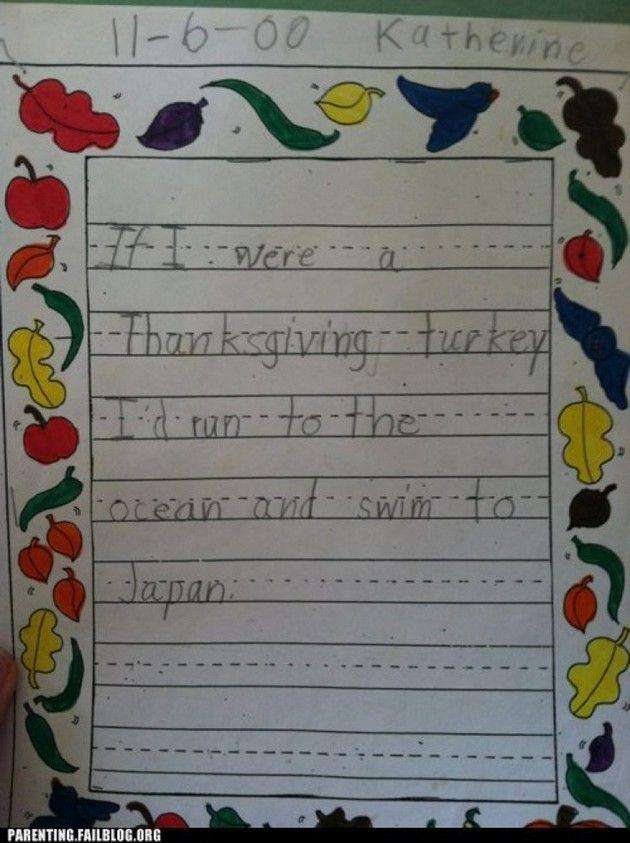 11-6-00 Katherine
If I were a
Thanksgiving turkey
I'd run to the
ocean and swim to
Japan.
PARENTING.FAILBLOG.ORG